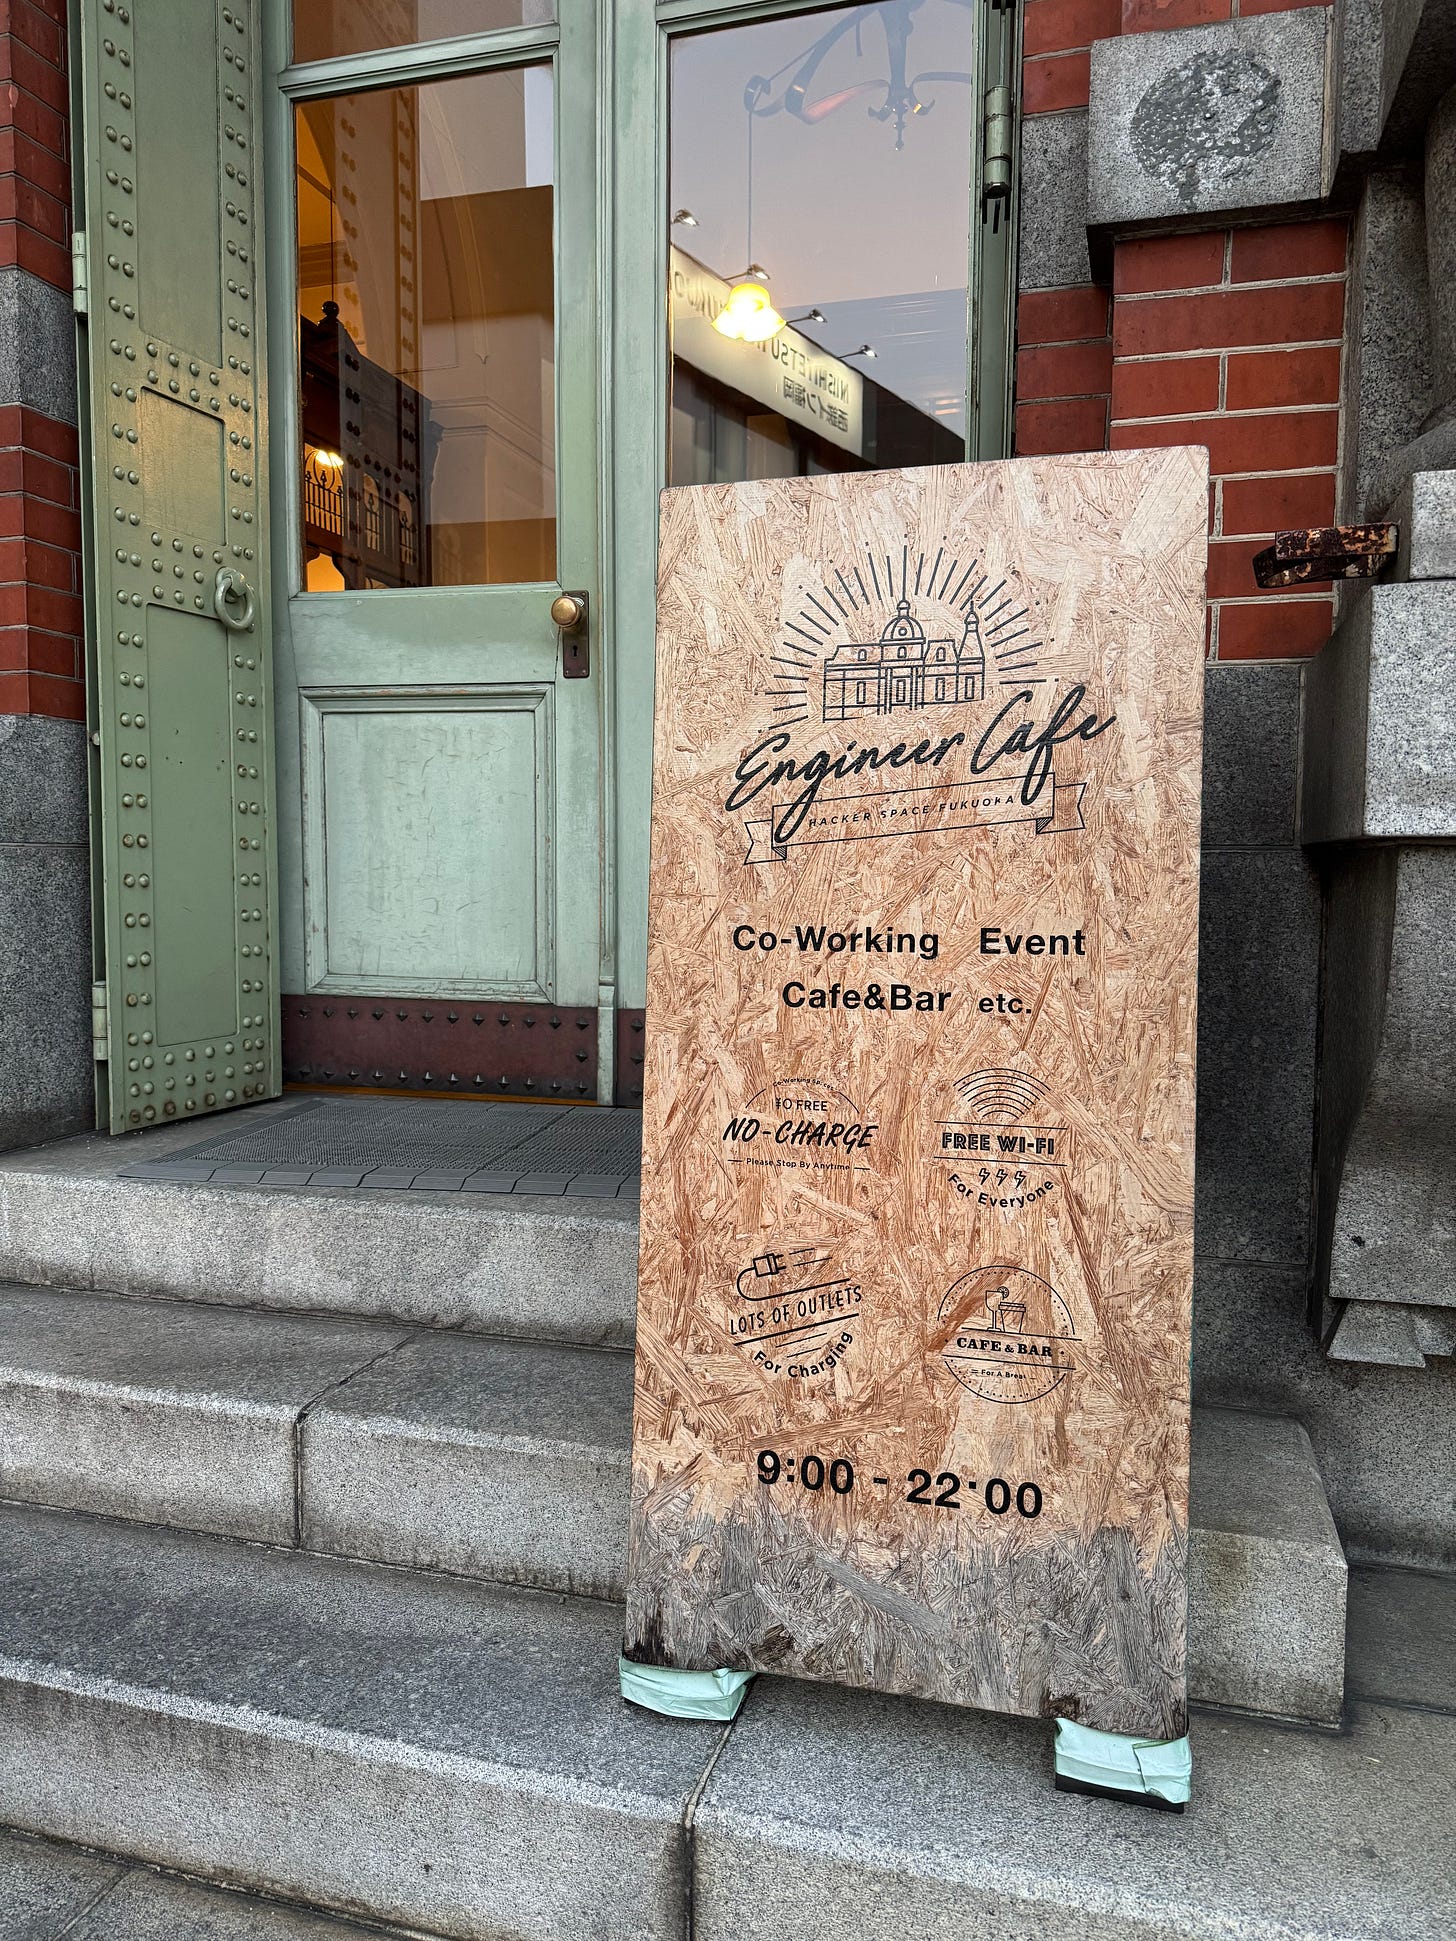 NISHITETSU
西鉄イン福岡
Engineer Cafe
HACKER SPACE FUKUOKA
Co-Working Event
Cafe&Bar etc.
Co-Working Space
¥0 FREE
NO-CHARGE
Please Stop By Anytime
FREE WI-FI
For Everyone
LOTS OF OUTLETS
For Charging
CAFE & BAR
For A Break
9:00 - 22:00